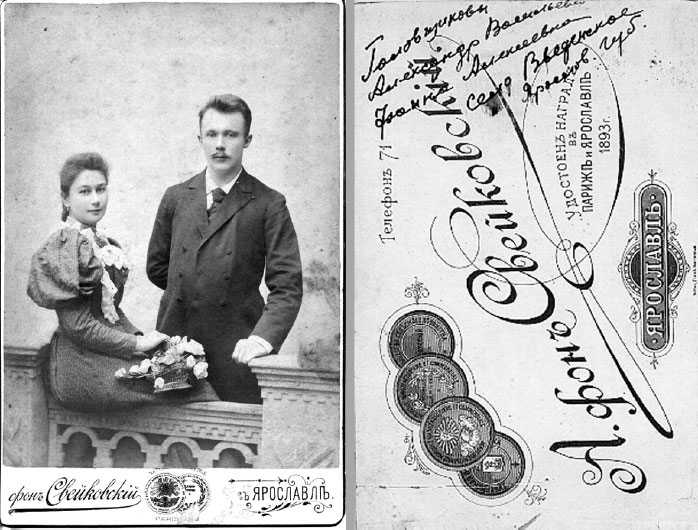 фонъ Свейковскій
PARIS
въ ЯРОСЛАВЛѢ.
Головщиковы
Александр Васильевич
Алексеевна
село Введенское
Яросл. губ.
Телефонъ 71
Л. фонъ Свейковскій
УДОСТОЕНЪ НАГРАДЪ
ВЪ
ПАРИЖѢ и ЯРОСЛАВЛѢ
1893 г.
ЯРОСЛАВЛЬ